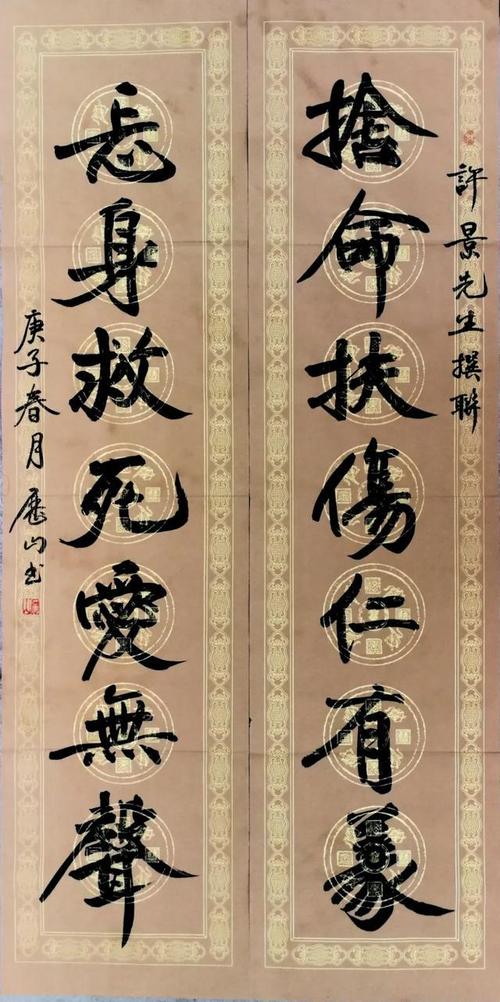 許景先生撰聯
捨命扶傷仁有象
忘身救死愛無聲
庚子春月 歷山书